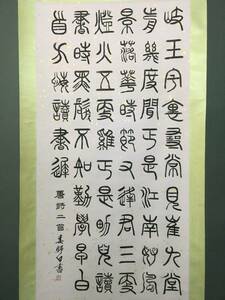 岐王宅裏尋常見崔九堂
前幾度聞正是江南好風
景落華時節又逢君三更
燈火五更雞正是男兒讀
書時黑髮不知勤學早白
首方悔讀書遲
唐詩二首